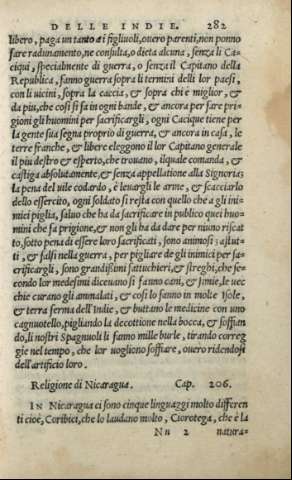 DELLE INDIE. 282
libero, paga un tanto a i figliuoli, ouero parenti, non ponno
fare radunamento, ne consulta, o dieta alcuna, senza li Ca-
ciqui, specialmente di guerra, o senza il Capitano della
Republica, fanno guerra sopra li termini delli lor paesi,
con li uicini, sopra la caccia, & sopra chi è miglior, &
da piu, che cosi si fa in ogni bande, & ancora per fare pri-
gioni gli huomini per sacrificargli, ogni Cacique tiene per
la gente sua segna proprio di guerra, & ancora in casa, le
terre franche, & libere eleggono il lor Capitano generale
il piu destro & esperto, che trouano, ilquale comanda, &
castiga absolutamente, & senza appellatione alla Signoria:
la pena del uile codardo, è leuargli le arme, & scacciarlo
dello essercito, ogni soldato si resta con quello che a gli ini-
mici piglia, saluo che ha da sacrificare in publico quei huo-
mini che fa prigione, & non gli ha da dare per niuno riscat
to, sotto pena di essere loro sacrificati, sono animosi, astuti
ti, & falsi nella guerra, per pigliare de gli inimici per sa-
crificargli, sono grandissimi fattuchieri, & streghi, che se-
condo lor medesimi diceuano si fanno cani, & simie, le uec
chie curano gli ammalati, & cosi lo fanno in molte Isole,
& terra ferma dell'Indie, & buttano le medicine con uno
cagnuotello, pigliando la decottione nella bocca, & soffian-
do, li nostri Spagnuoli li fanno mille burle, tirando correg
gie nel tempo, che lor uogliono soffiare, ouero ridendosi
dell'artificio loro.
Religione di Nicaragua. Cap. 206.
IN Nicaragua ci sono cinque linguaggi molto differen
ti cioè, Coribici, che lo laudano molto, Ciorotega, che è la
Nn 2 natura-